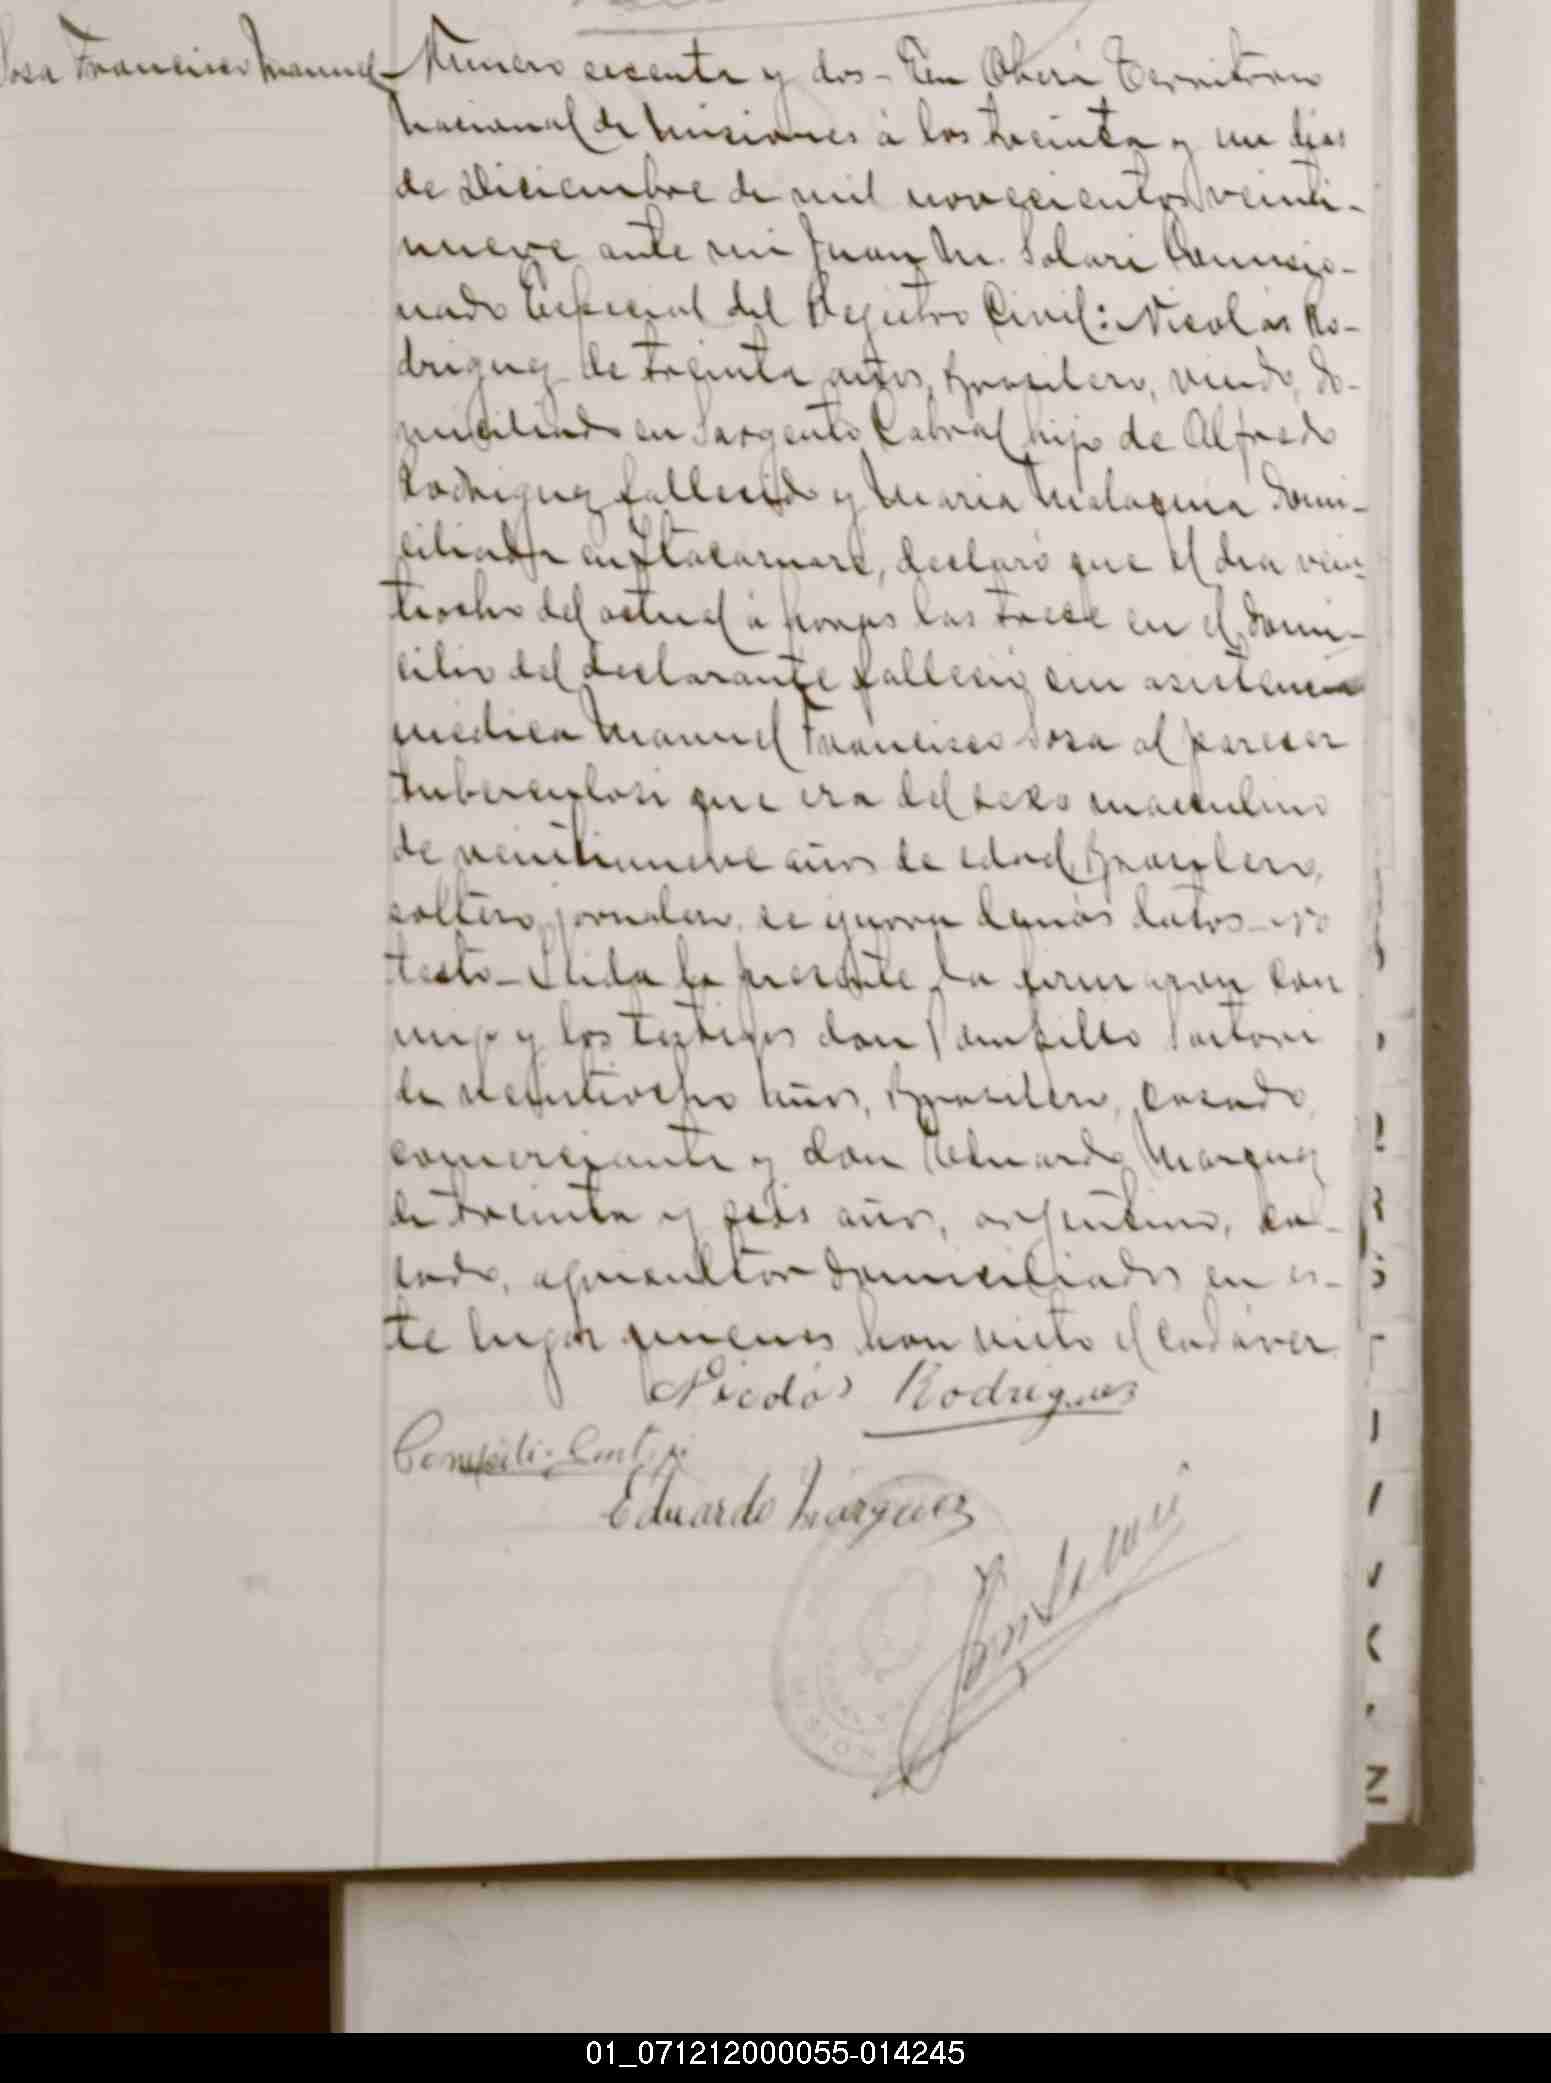 Sosa Francisco Manuel
Número sesenta y dos - En Oberá Territorio
Nacional de Misiones á los treinta y un dias
de Diciembre de mil novecientos veinti-
nueve ante mi Juan M. Solari Comisio-
nado Especial del Registro Civil: Nicolás Ro-
driguez de treinta años, brasilero, viudo, do-
miciliado en Sargento Cabral hijo de Alfredo
Rodriguez fallecido y Maria domi-
ciliada en declaró que el dia vein-
tiocho del actual á horas las trece en el domi-
cilio del declarante falleció sin asistencia
médica Manuel Francisco Sosa al parecer
tuberculosi que era del sexo masculino
de veintinueve años de edad, brasilero,
soltero, jornalero, se ignora demás datos - no
testó - Leida la presente, la firmaron con-
migo y los testigos don
de veintiocho años, brasilero, casado,
comerciante y don Eduardo Marquez
de treinta y seis años, argentino, ca-
sado, agricultor domiciliados en es-
te lugar quienes han visto el cadáver
Nicolás Rodrigues
Eduardo Márquez
01_071212000055-014245